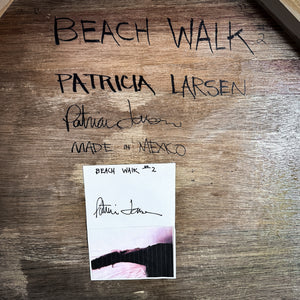 BEACH WALK 2
PATRICIA LARSEN
Patricia Larsen
MADE IN MEXICO
BEACH WALK #2
Patricia Larsen